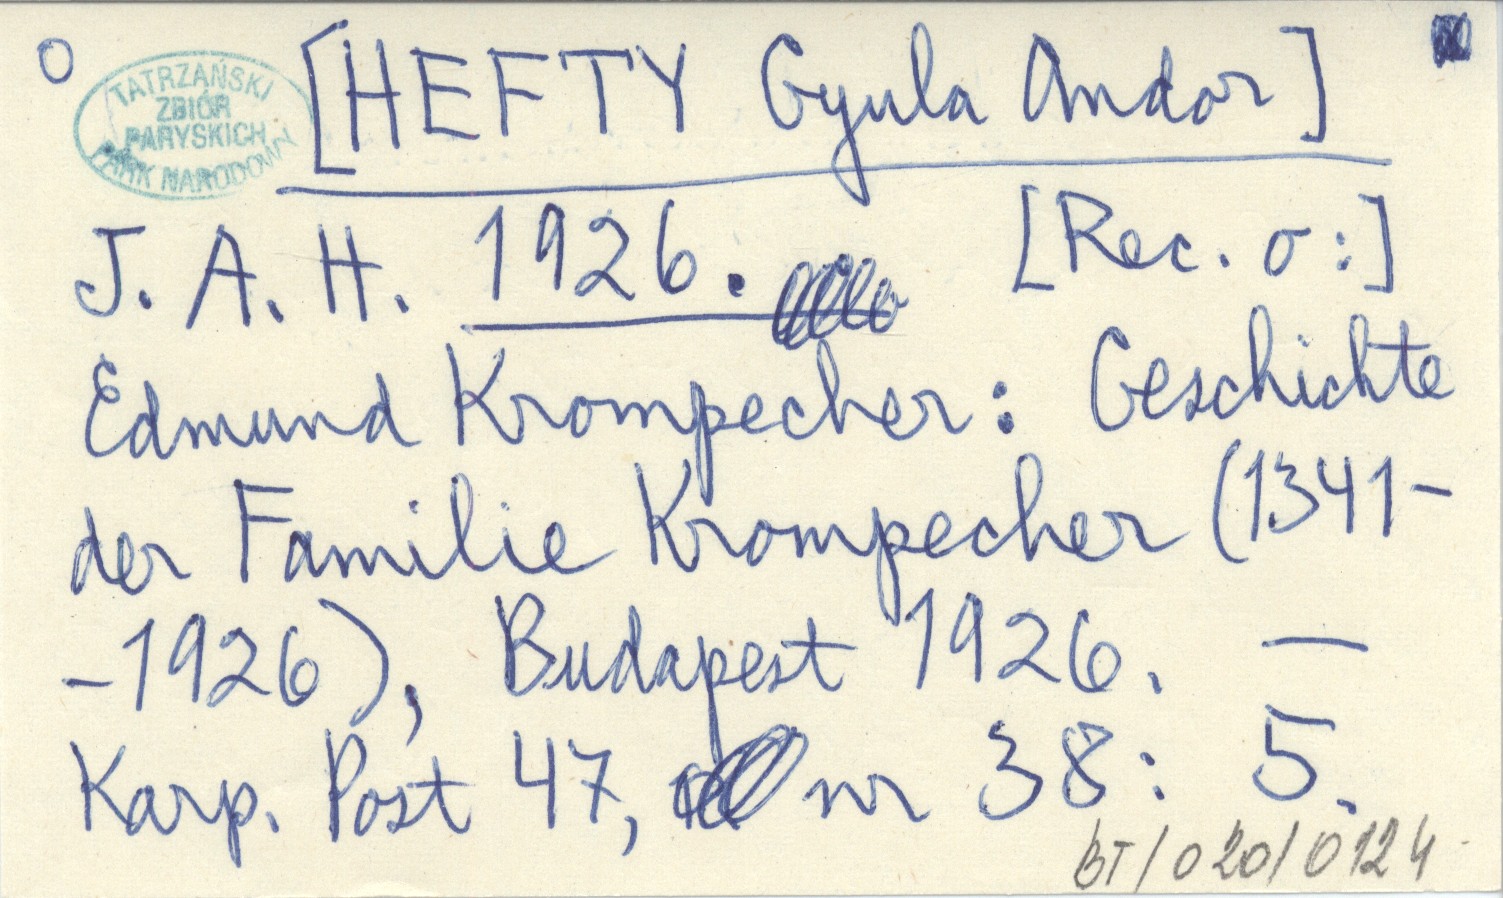 O
TATRZAŃSKI
ZBIÓR
PARYSKICH
PARK NARODOWY
[HEFTY Gyula Andor]
J. A. H. 1926. [Rec. o:]
Edmund Krompecher: Geschichte
der Familie Krompecher (1341-
-1926), Budapest 1926. —
Karp. Post 47, nr 38: 5.
BT/020/0124